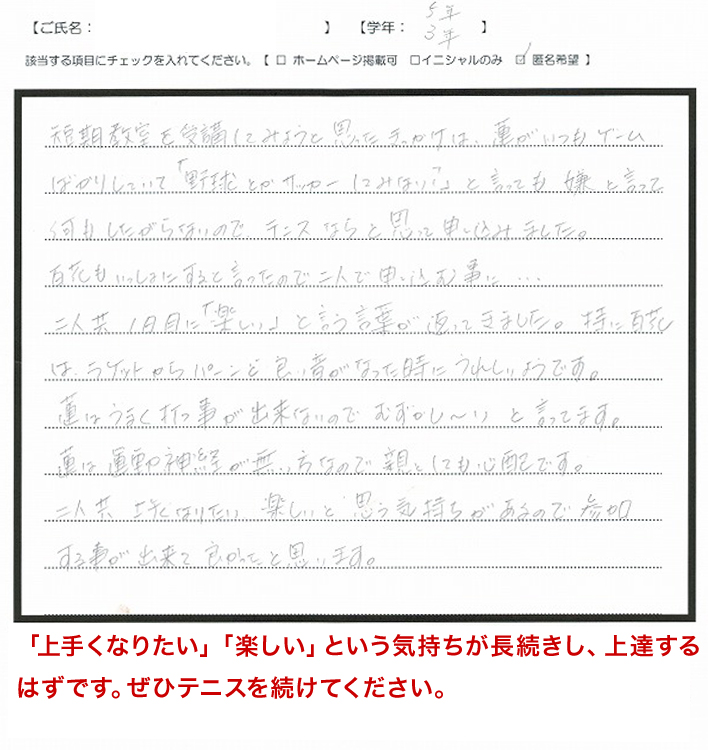 【ご氏名： 】 【学年： 5年 3年 】
該当する項目にチェックを入れてください。【 □ ホームページ掲載可 □イニシャルのみ ☑ 匿名希望 】
短期教室を受講してみようと思ったきっかけは、蓮がいつもゲーム
ばかりしていて「野球とかサッカーしてみない？」と言っても嫌と言って
何もしたがらないので、テニスならと思って申し込みました。
百花もいっしょにすると言ったので二人で申し込む事に…
二人共1日目に「楽しい」と言う言葉が返ってきました。特に百花
は、ラケットからパーンと良い音がなった時にうれしいようです。
蓮はうまく打つ事が出来ないのでむずかし〜いと言ってます。
蓮は運動神経が無い方なので親としても心配です。
二人共 上手くなりたい 楽しいと思う気持ちがあるので参加
する事が出来て良かったと思います。
「上手くなりたい」「楽しい」という気持ちが長続きし、上達する
はずです。ぜひテニスを続けてください。